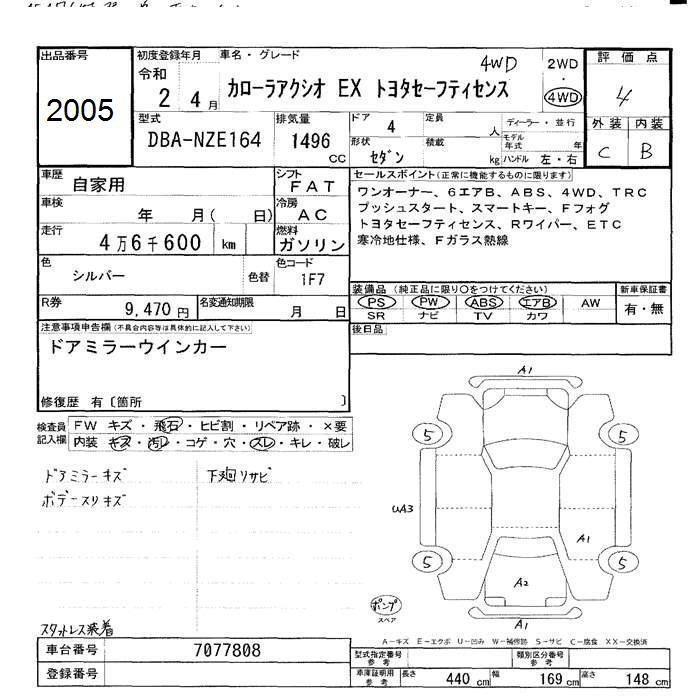 出品番号
2005
初度登録年月
令和
2 4月
車名・グレード
カローラアクシオ EX トヨタセーフティセンス
4WD
2WD
・
4WD
評価点
4
外装 内装
C B
型式
DBA-NZE164
排気量
1496
cc
ドア
4
定員
人
ディーラー・並行
モデル
年式 年
形状
セダン
積載
kg
ハンドル 左・右
車歴
自家用
シフト
FAT
車検
年 月( 日)
冷房
AC
走行
4万6千600 km
燃料
ガソリン
色
シルバー
色替
色コード
1F7
R券
9,470円
名変通知期限
月 日
セールスポイント(正常に機能するものに限ります)
ワンオーナー、6エアB、ABS、4WD、TRC
プッシュスタート、スマートキー、Fフォグ
トヨタセーフティセンス、Rワイパー、ETC
寒冷地仕様、Fガラス熱線
装備品(純正品に限り〇をつけてください)
PS PW ABS エアB AW
SR ナビ TV カワ
新車保証書
有・無
後日品
注意事項申告欄(不具合内容等は具体的に記入して下さい)
ドアミラーウインカー
修復歴 有〔箇所 〕
検査員
記入欄
FW キズ・飛石・ヒビ割・リペア跡・×要
内装 キズ・汚レ・コゲ・穴・スレ・キレ・破レ
ドアミラーキズ
ボデースリキズ
下廻リサビ
スタットレス装着
A1
5 5
UA3
A1
5 5
A2
A1
ポンプ
スペア
A-キズ E-エクボ U-凹み W-補修跡 S-サビ C-腐食 XX-交換済
車台番号
7077808
登録番号
型式指定番号
参考
類別区分番号
参考
車庫証明用
参考
長さ 440 cm 幅 169 cm 高さ 148 cm